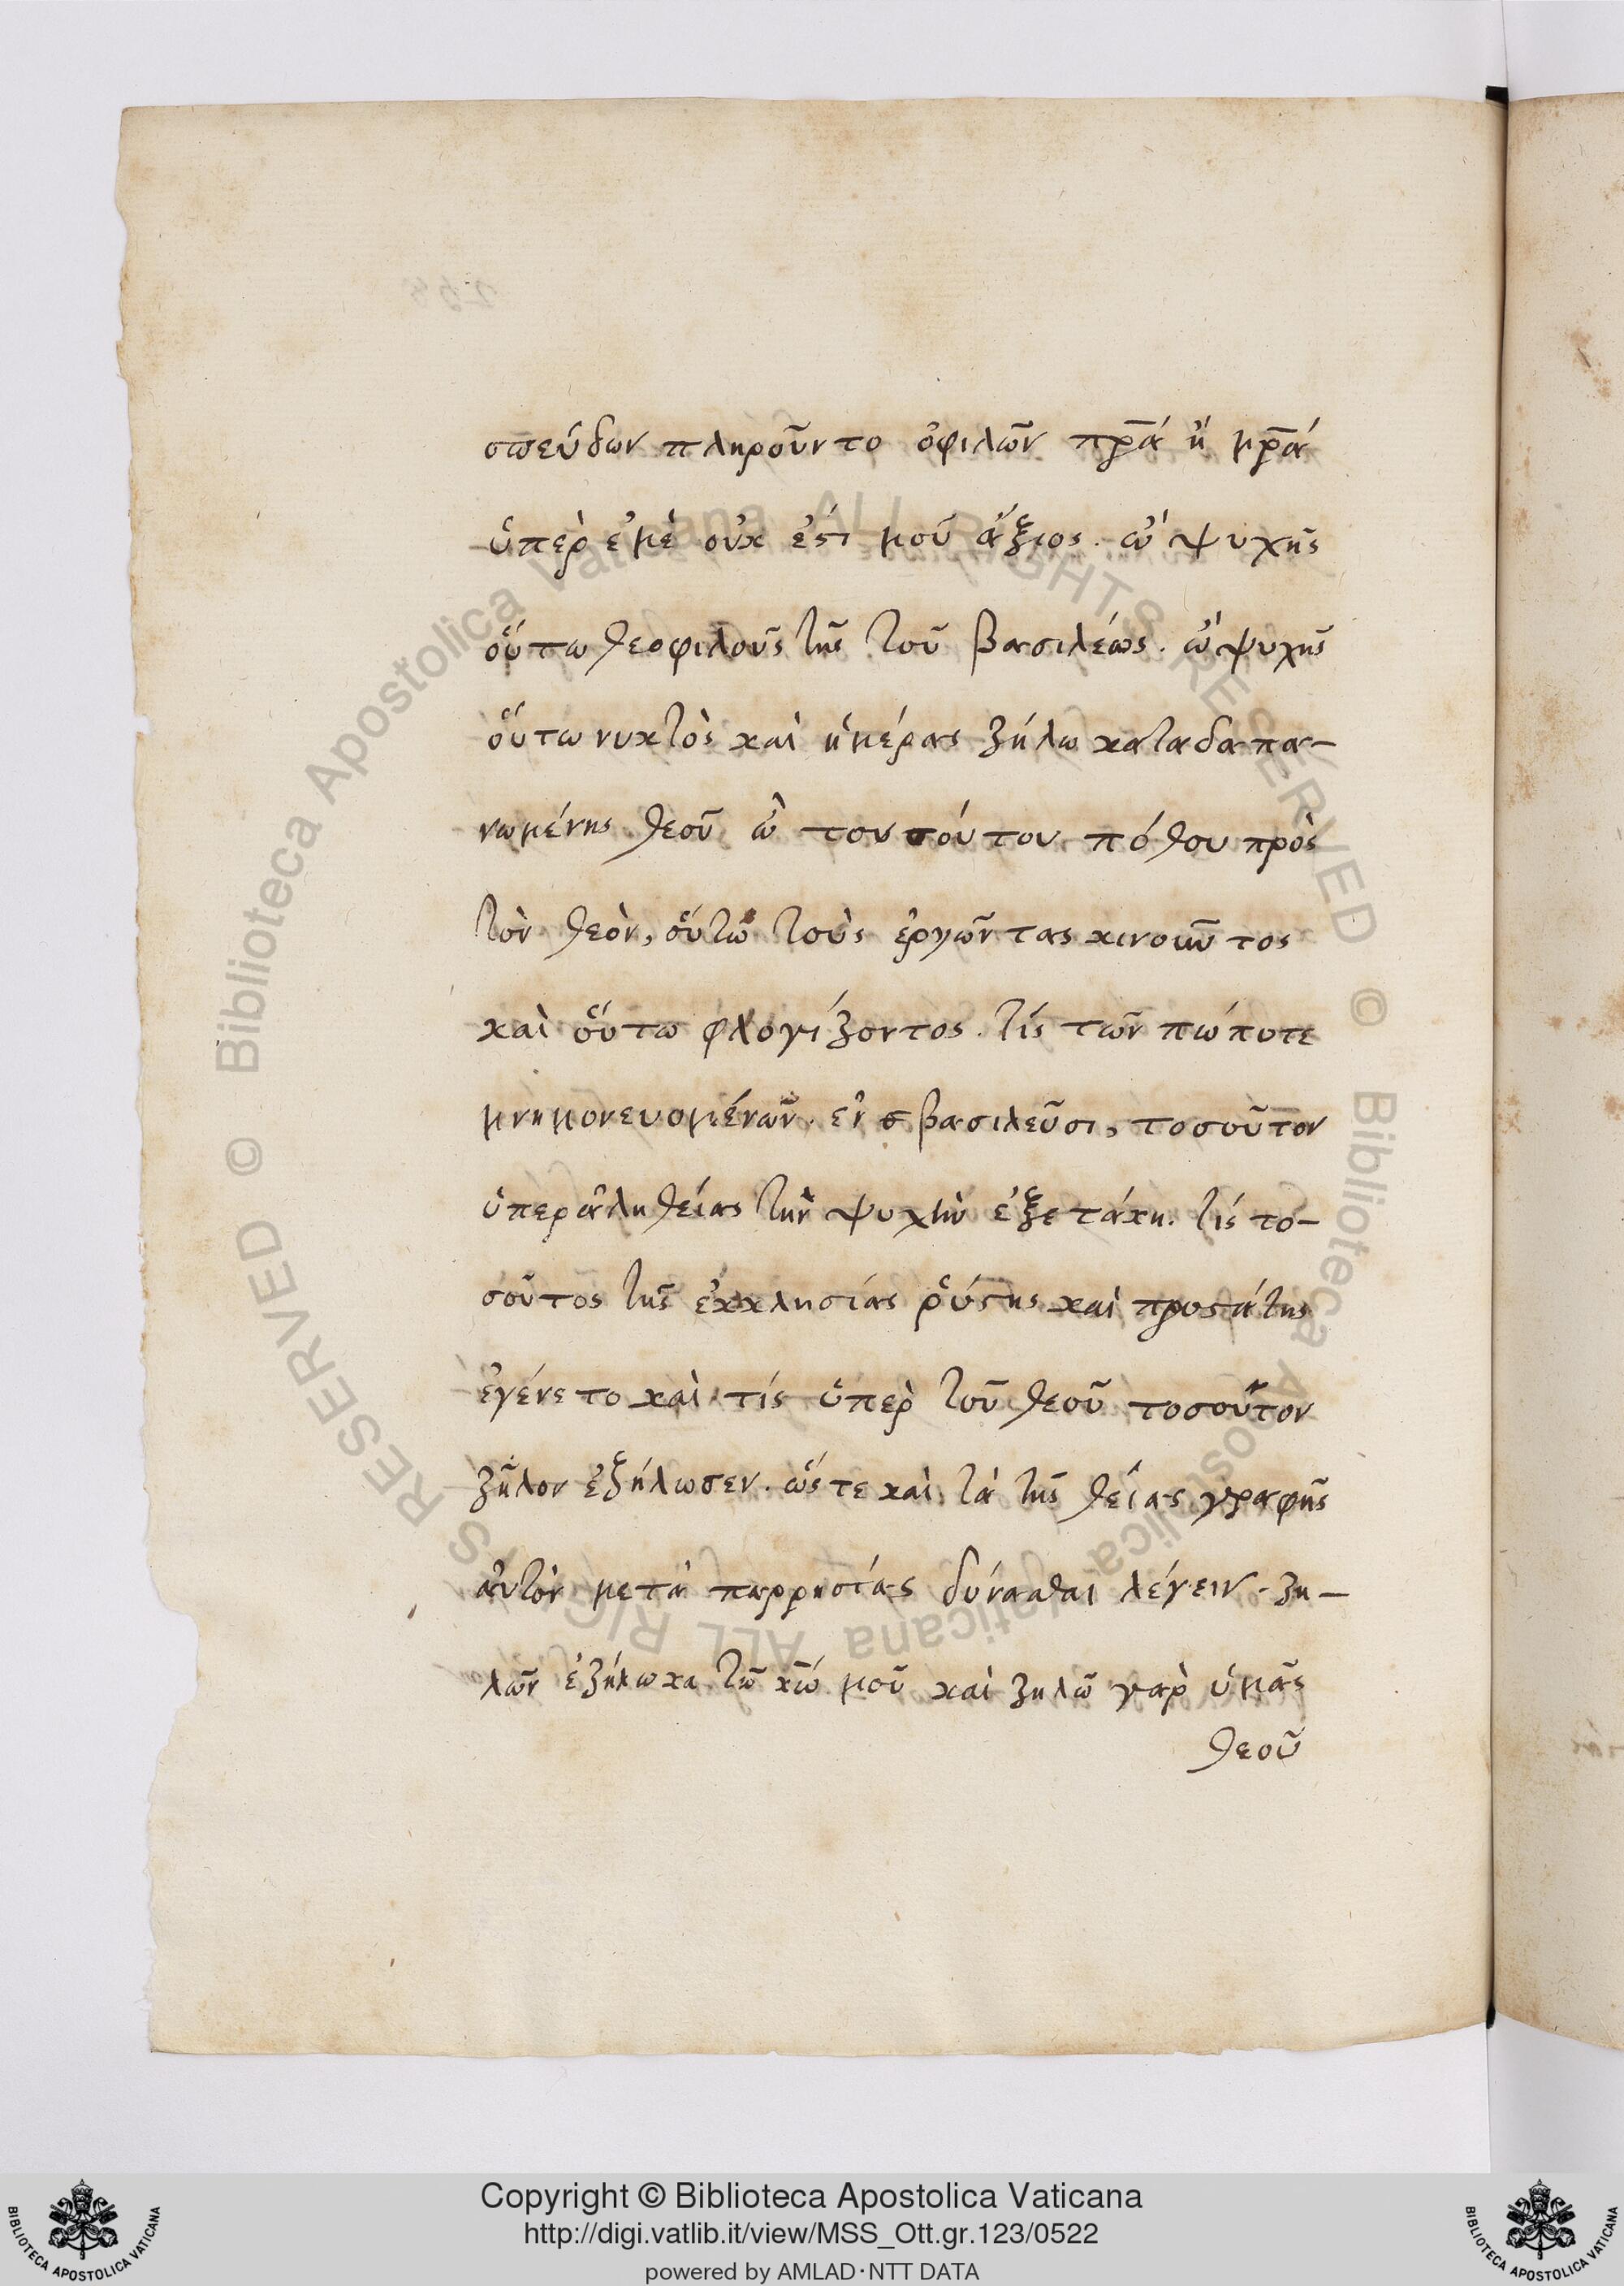 σπεύδων πληροῦν το ὀφιλῶν πρ̅ά ἢ μρ̅ά
ὑπὲρ ἐμὲ οὐκ ἐστί μοῦ ἄξιος. ὢ ψυχῆς
οὕτω θεοφιλοῦς τῆς τοῦ βασιλέως. ὢ ψυχῆς
οὕτω νυκτὸς καὶ ἡμέρας ζήλω καταδαπα-
νωμένης θεοῦ ὢ τουσούτου πόθου πρὸς
τὸν θεὸν, οὕτω τοὺς ἐρῶντας κινοῦντος
καὶ οὕτω φλογίζοντος. τίς τῶν πώποτε
μνημονευομένων. ἐν βασιλεῦσι, τοσοῦτον
ὑπεραληθείας τὴν ψυχὴν ἐξετάκη. τίς το-
σοῦτος τῆς ἐκκλησίας ῥύστης καὶ προστάτης
ἐγένετο καὶ τίς ὑπὲρ τοῦ θεοῦ τοσοῦτον
ζῆλον ἐζήλωσεν. ὥστε καὶ τὰ τῆς θείας γραφῆς
αὐτὸν μετὰ παρρησίας δύνασθαι λέγειν. ζη-
λῶν ἐζήλωκα τῶ κ̅ω μοῦ καὶ ζηλῶ γαρ ὑμᾶς
θεοῦ
Copyright © Biblioteca Apostolica Vaticana
http://digi.vatlib.it/view/MSS_Ott.gr.123/0522
powered by AMLAD·NTT DATA